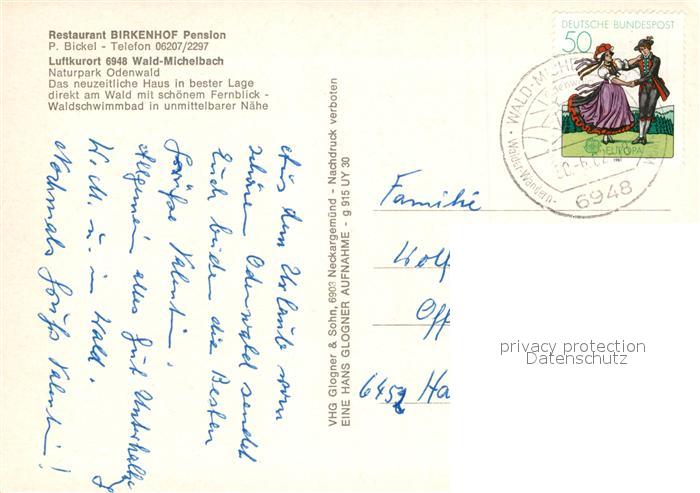 Restaurant BIRKENHOF Pension
P. Bickel - Telefon 06207/2297
Luftkurort 6948 Wald-Michelbach
Naturpark Odenwald
Das neuzeitliche Haus in bester Lage
direkt am Wald mit schönem Fernblick -
Waldschwimmbad in unmittelbarer Nähe
Aus dem Urlaub vom
schönen Odenwald sendet
Euch beiden die Besten
Grüße Valentin.
Allgemein alles gut Unterhalte
W. M. u. im Wald.
Nochmals Gruß Valentin!
VHG Glogner & Sohn, 6903 Neckargemünd - Nachdruck verboten
EINE HANS GLOGNER AUFNAHME - g 915 UY 30
DEUTSCHE BUNDESPOST
50
EUROPA
1981
WALD-MICHE
6948
Familie
Wolf
Off
6452 Ha
privacy protection
Datenschutz